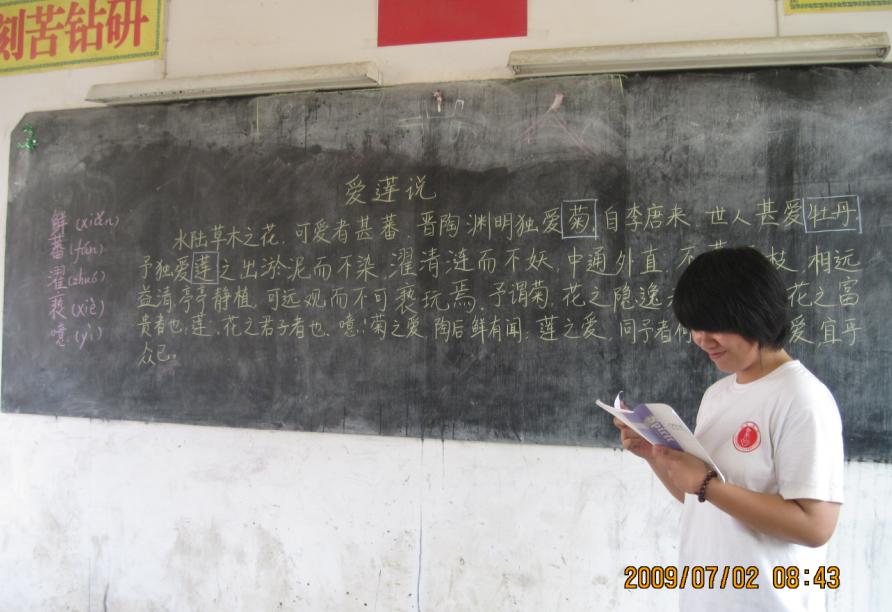 刻苦钻研
爱莲说
鲜(xiǎn)
蕃(fán)
濯(zhuó)
亵(xiè)
噫(yī)
水陆草木之花,可爱者甚蕃,晋陶渊明独爱菊,自李唐来,世人甚爱牡丹,
予独爱莲之出淤泥而不染,濯清涟而不妖,中通外直,不 枝,相远
益清,亭亭静植,可远观而不可亵玩焉,予谓菊,花之隐逸 花之富
贵者也;莲,花之君子者也。噫!菊之爱,陶后鲜有闻;莲之爱,同予者 爱,宜乎
众已。
2009/07/02 08:43